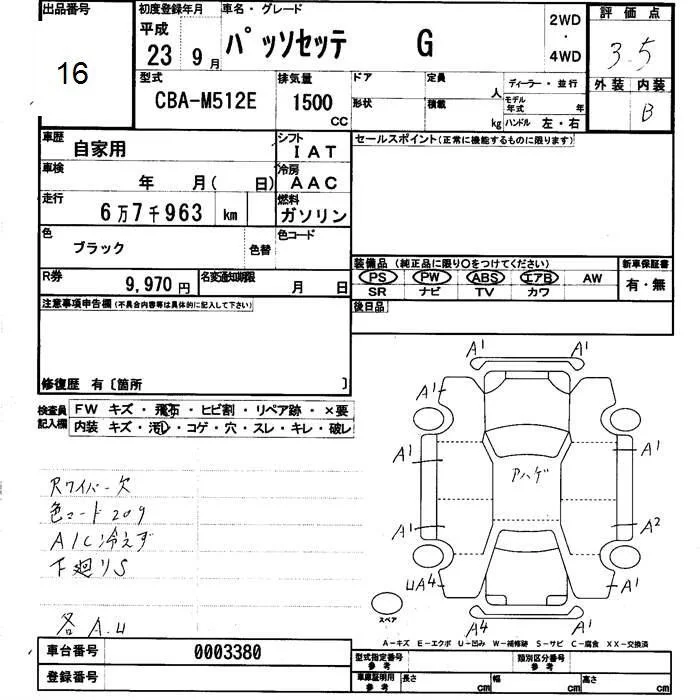 出品番号
16
初度登録年月
平成
23 9 月
車名・グレード
パッソセッテ G
2WD
・
4WD
評価点
3.5
外装 内装
B
型式
CBA-M512E
排気量
1500
CC
ドア
形状
定員
人
積載
kg
ディーラー・並行
モデル年式 年
ハンドル 左・右
車歴
自家用
シフト
IAT
車検
年 月( 日)
冷房
AAC
走行
6万7千963 km
燃料
ガソリン
色
ブラック
色替
色コード
R券
9,970 円
名変通知期限
月 日
セールスポイント(正常に機能するものに限ります)
装備品 (純正品に限り○をつけてください)
PS PW ABS エアB AW
SR ナビ TV カワ
新車保証書
有・無
後日品
注意事項申告欄 (不具合内容等は具体的に記入して下さい)
修復歴 有〔箇所 〕
検査員
記入欄
FW キズ・飛石・ヒビ割・リペア跡・×要
内装 キズ・汚レ・コゲ・穴・スレ・キレ・破レ
Rワイパー欠
色コード209
A/C冷えず
下廻りS
各A.U
A1 A1
A1 A1
A1 A1
アハゲ
A1 A2
UA4 A1
A4 A1
スペア
A-キズ E-エクボ U-凹み W-補修跡 S-サビ C-腐食 XX-交換済
車台番号
0003380
登録番号
型式指定番号
参考
類別区分番号
参考
車庫証明用
参考
長さ cm
幅 cm
高さ cm